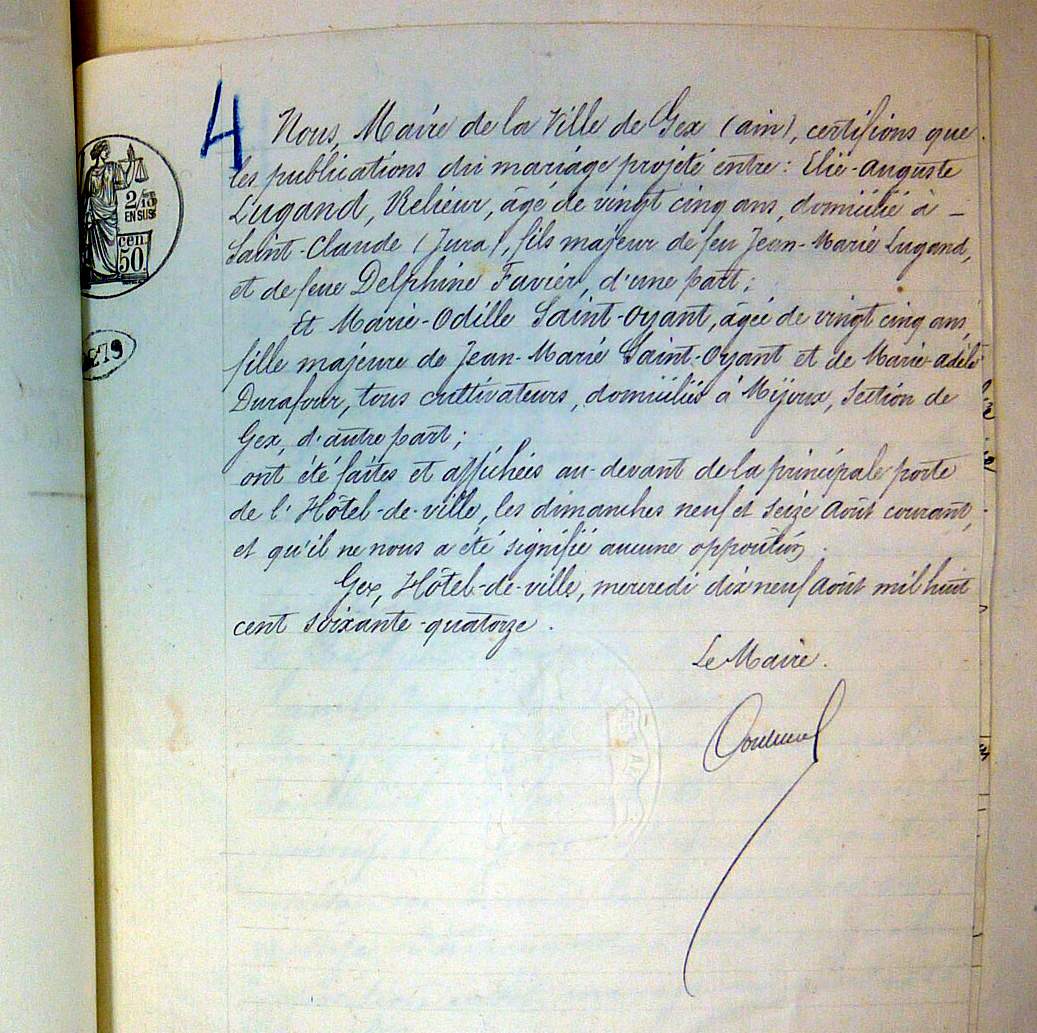 4
Nous, Maire de la Ville de Gex (ain), certifions que
les publications du mariage projeté entre : Elie-Auguste
Lugand, Relieur, âgé de vingt cinq ans, domicilié à –
Saint-Claude (Jura), fils majeur de feu Jean-Marie Lugand,
et de feue Delphine Favier, d'une part ;
Et Marie-Odille Saint-Oyant, âgée de vingt cinq ans,
fille majeure de Jean-Marie Saint-Oyant et de Marie-adèle
Durafour, tous cultivateurs, domiciliés à Mijoux, Section de
Gex, d'autre part ;
ont été faites et affichées au-devant de la principale porte
de l'Hôtel-de-ville, les dimanches neuf et seize Août courant,
et qu'il ne nous a été signifié aucune opposition.
Gex, Hôtel-de-ville, mercredi dix neuf Août mil huit
cent soixante-quatorze.
Le Maire.
2/10
EN SUS
cen.
50